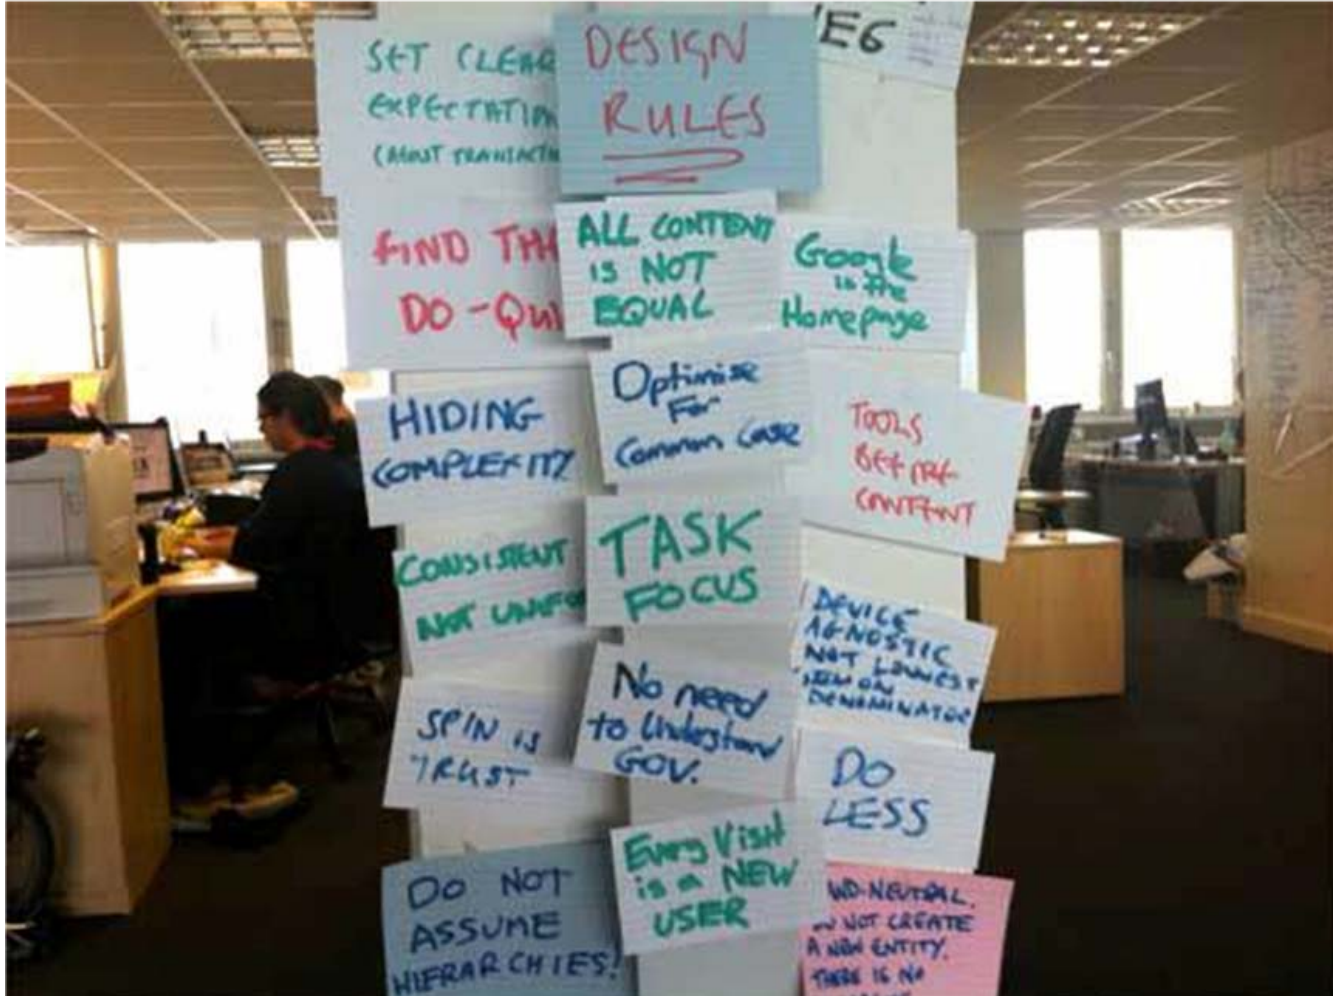 SET CLEAR
EXPECTATION
DESIGN
RULES
IE6
FIND THE
DO - QUI
ALL CONTENT
IS NOT
EQUAL
Google
is the
Homepage
HIDING
COMPLEXITY
Optimise
For
Common Case
TOOLS
BEFORE
CONTENT
CONSISTENT
NOT UNIFO
TASK
FOCUS
DEVICE
AGNOSTIC
NOT LOWEST
DENOMINATOR
SPIN IS
TRUST
No need
to Understand
GOV.
DO
LESS
DO NOT
ASSUME
HIERARCHIES!
Every Visit
is a NEW
USER
ND-NEUTRAL.
NOT CREATE
A NEW ENTITY.
THERE IS NO